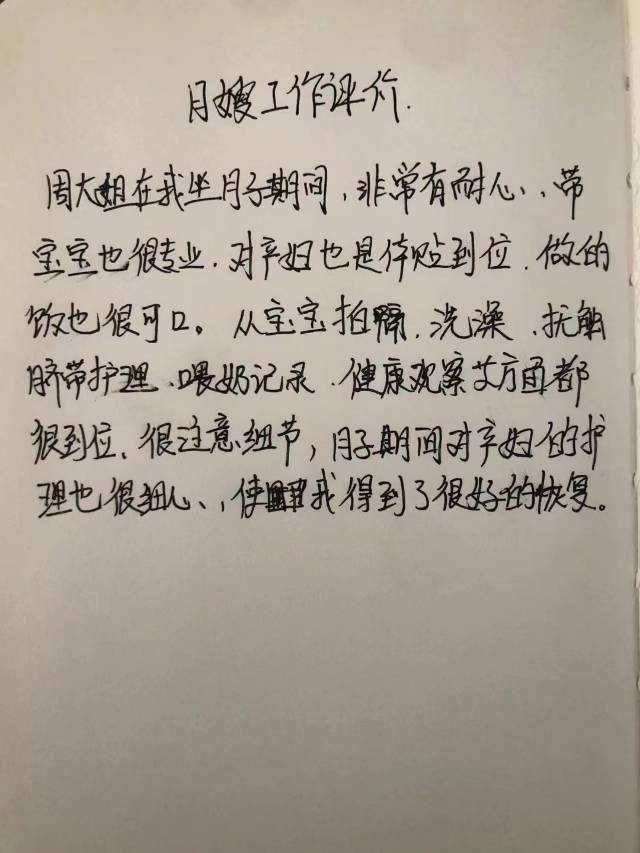 月嫂工作评价.
周大姐在我坐月子期间,非常有耐心、,带
宝宝也很专业.对产妇也是体贴到位.做的
饭也很可口。从宝宝拍嗝.洗澡、抚触
脐带护理、喂奶记录.健康观察各方面都
很到位、很注意细节,月子期间对产妇的护
理也很细心、,使我得到了很好的恢复。